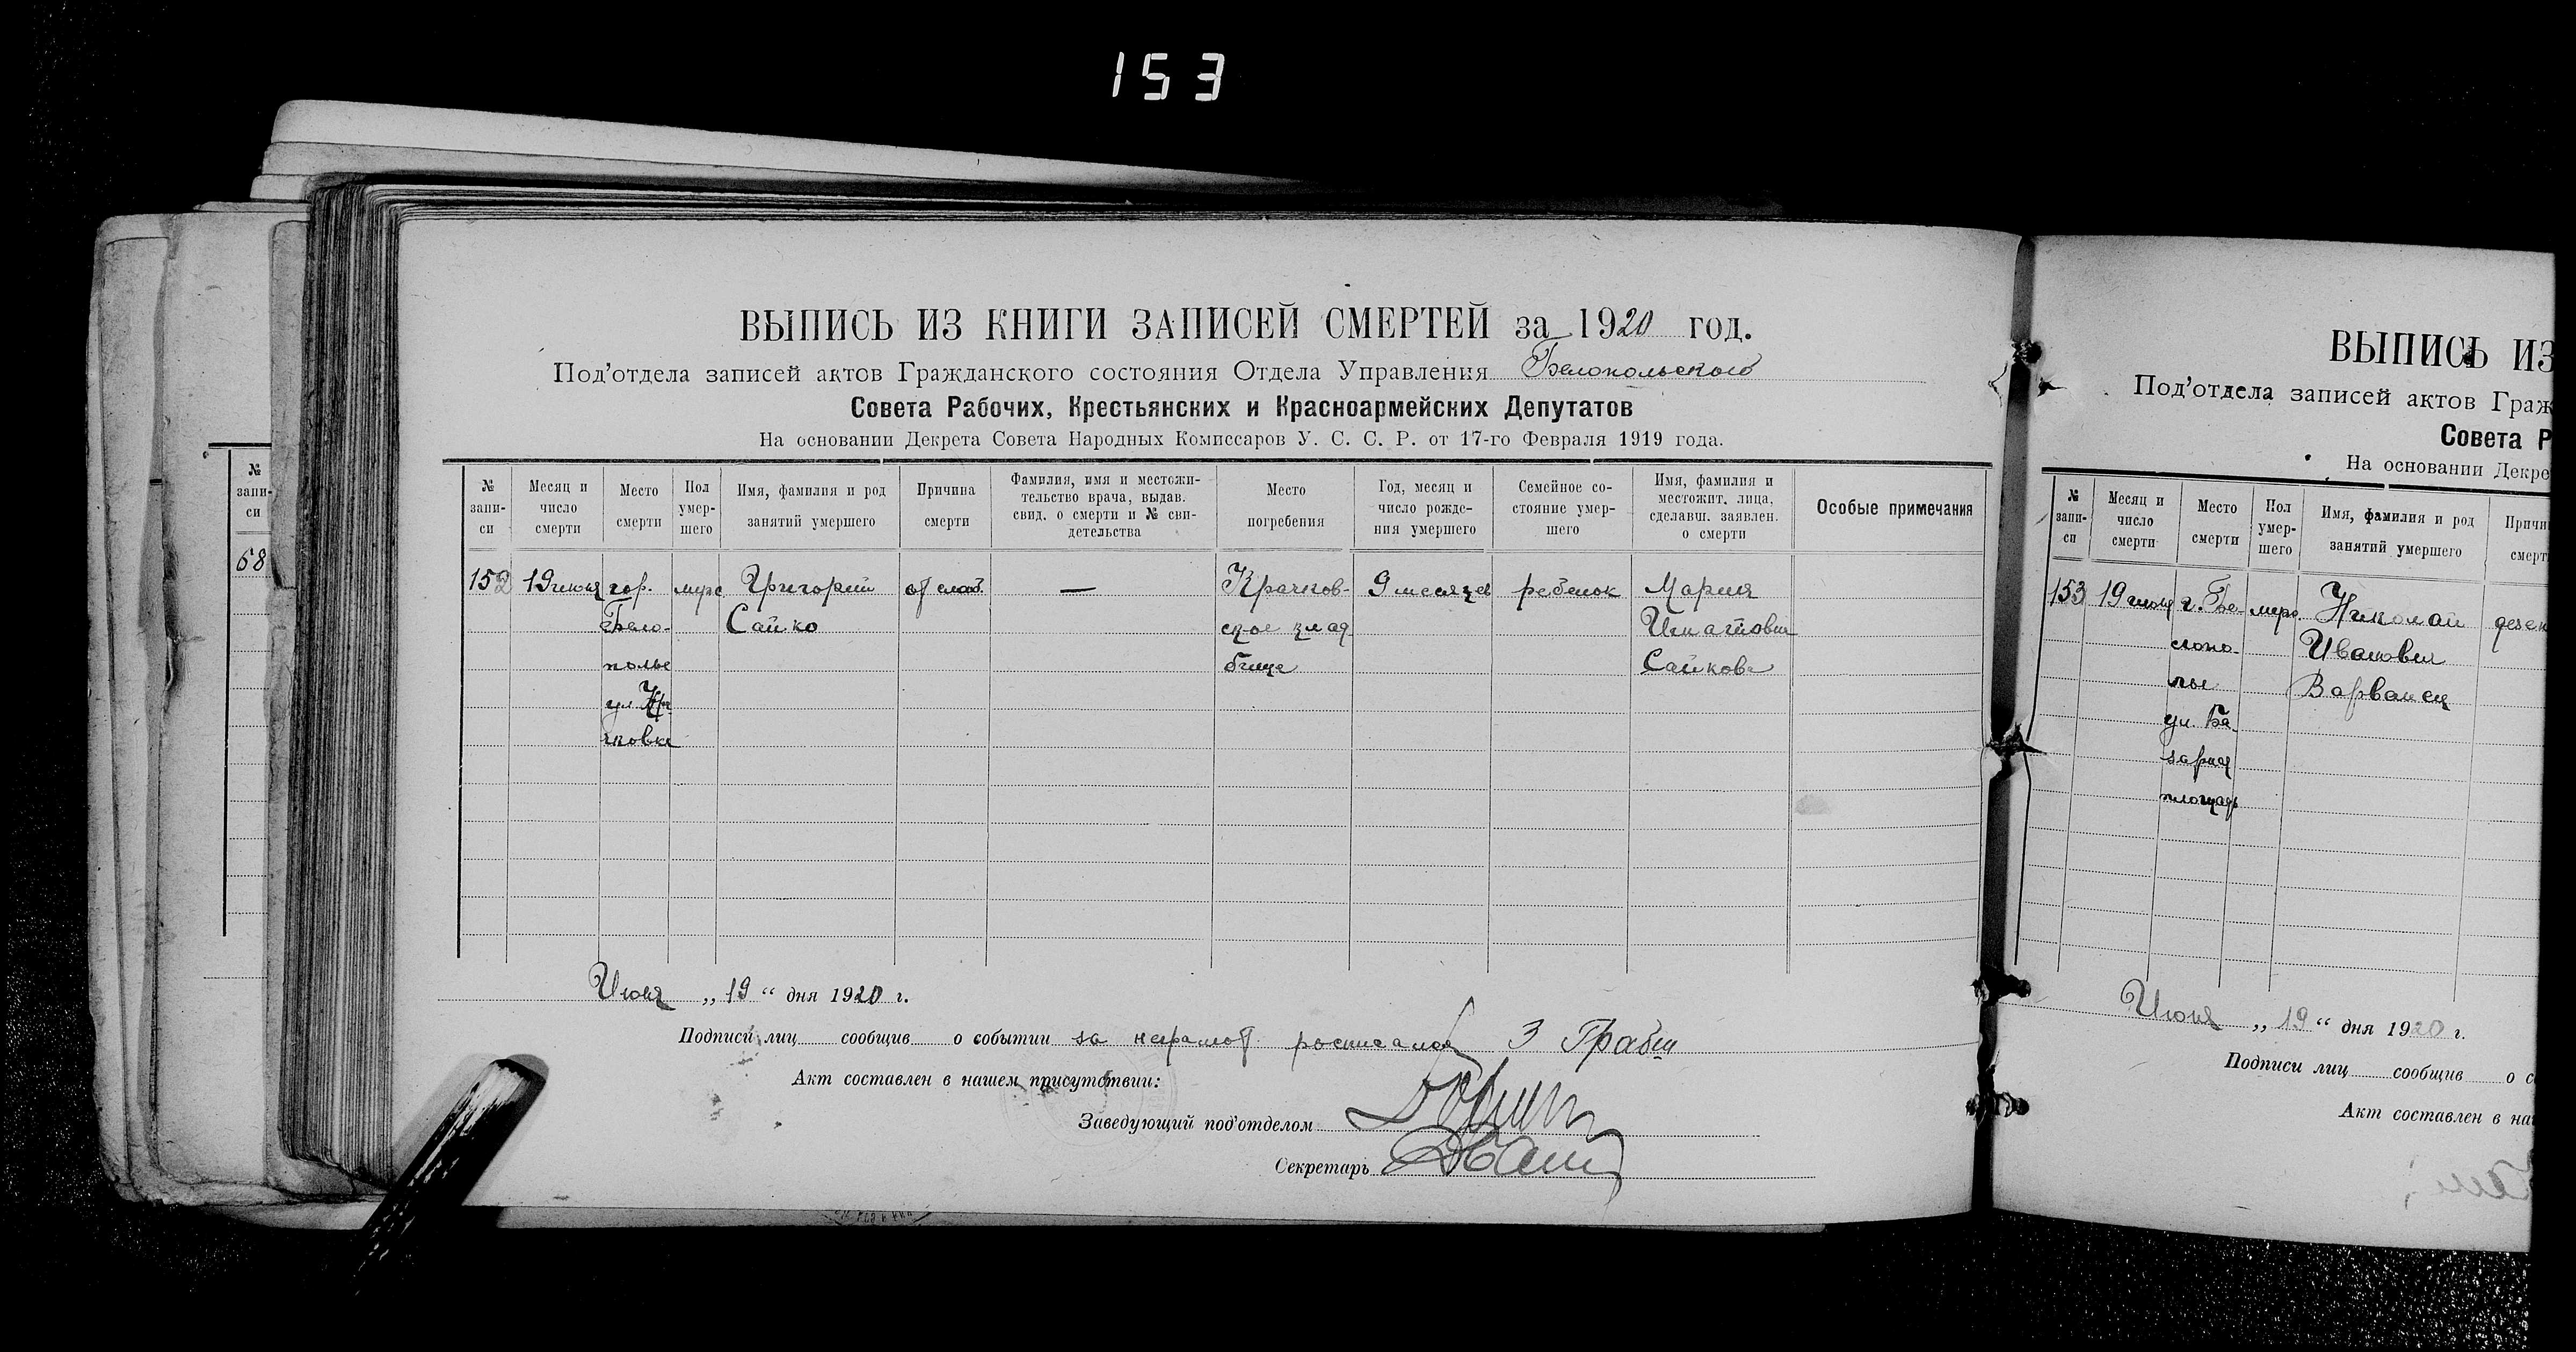 153
ВЫПИСЬ ИЗ КНИГИ ЗАПИСЕЙ СМЕРТЕЙ за 1920 год.
Под'отдела записей актов Гражданского состояния Отдела Управления Белопольского
Совета Рабочих, Крестьянских и Красноармейских Депутатов
На основании Декрета Совета Народных Комиссаров У. С. С. Р. от 17-го Февраля 1919 года.
№ запи-
си
68
№ запи-
си
Месяц и
число
смерти
Место
смерти
Пол
умер-
шего
Имя, фамилия и род
занятий умершего
Причина
смерти
Фамилия, имя и местожи-
тельство врача, выдав.
свид. о смерти и № сви-
детельства
Место
погребения
Год, месяц и
число рожде-
ния умершего
Семейное со-
стояние умер-
шего
Имя, фамилия и
местожит. лица,
сделавш. заявлен.
о смерти
Особые примечания
152
19 июня
гор.
Бело-
полье
ул. Кра
чковка
муж
Григорий
Сайко
от слаб.
—
Крачков-
ское клад
бище
9 месяцев
ребенок
Мария
Игнатовна
Сайкова
Июня „ 19 “ дня 1920 г.
Подписи лиц сообщив о событии за неграмот росписалса З Граби
Акт составлен в нашем присутствии:
Заведующий под'отделом
Секретарь
ВЫПИСЬ ИЗ
Под'отдела записей актов Граж
Совета Р
На основании Декре
№ запи-
си
Месяц и
число
смерти
Место
смерти
Пол
умер-
шего
Имя, фамилия и род
занятий умершего
Причин
смерт
153
19 июня
г. Бе-
лопо-
лье
ул. Ба-
зарная
площадь
муж.
Николай
Иванович
Варванец
дезен
Июня „ 19 “ дня 1920 г.
Подписи лиц сообщив о с
Акт составлен в на